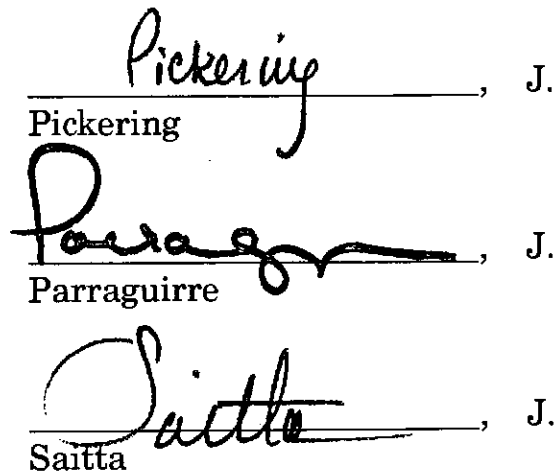 Pickering, J.
Pickering
Parraguirre, J.
Parraguirre
Saitta, J.
Saitta